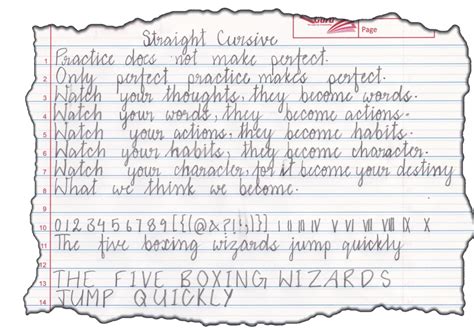 Guru
Page
Straight Cursive
1 Practice does not make perfect.
2 Only perfect practice makes perfect.
3 Watch your thoughts, they become words.
4 Watch your words, they become actions.
5 Watch your actions, they become habits.
6 Watch your habits, they become character.
7 Watch your character, for it become your destiny
8 What we think we become.
9
10 0 1 2 3 4 5 6 7 8 9 [{(@&?!,)}] I II III IV V VI VII VIII IX X
11 The five boxing wizards jump quickly
12
13 THE FIVE BOXING WIZARDS
14 JUMP QUICKLY